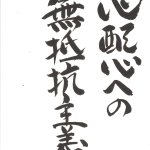 心配心への
無抵抗主義